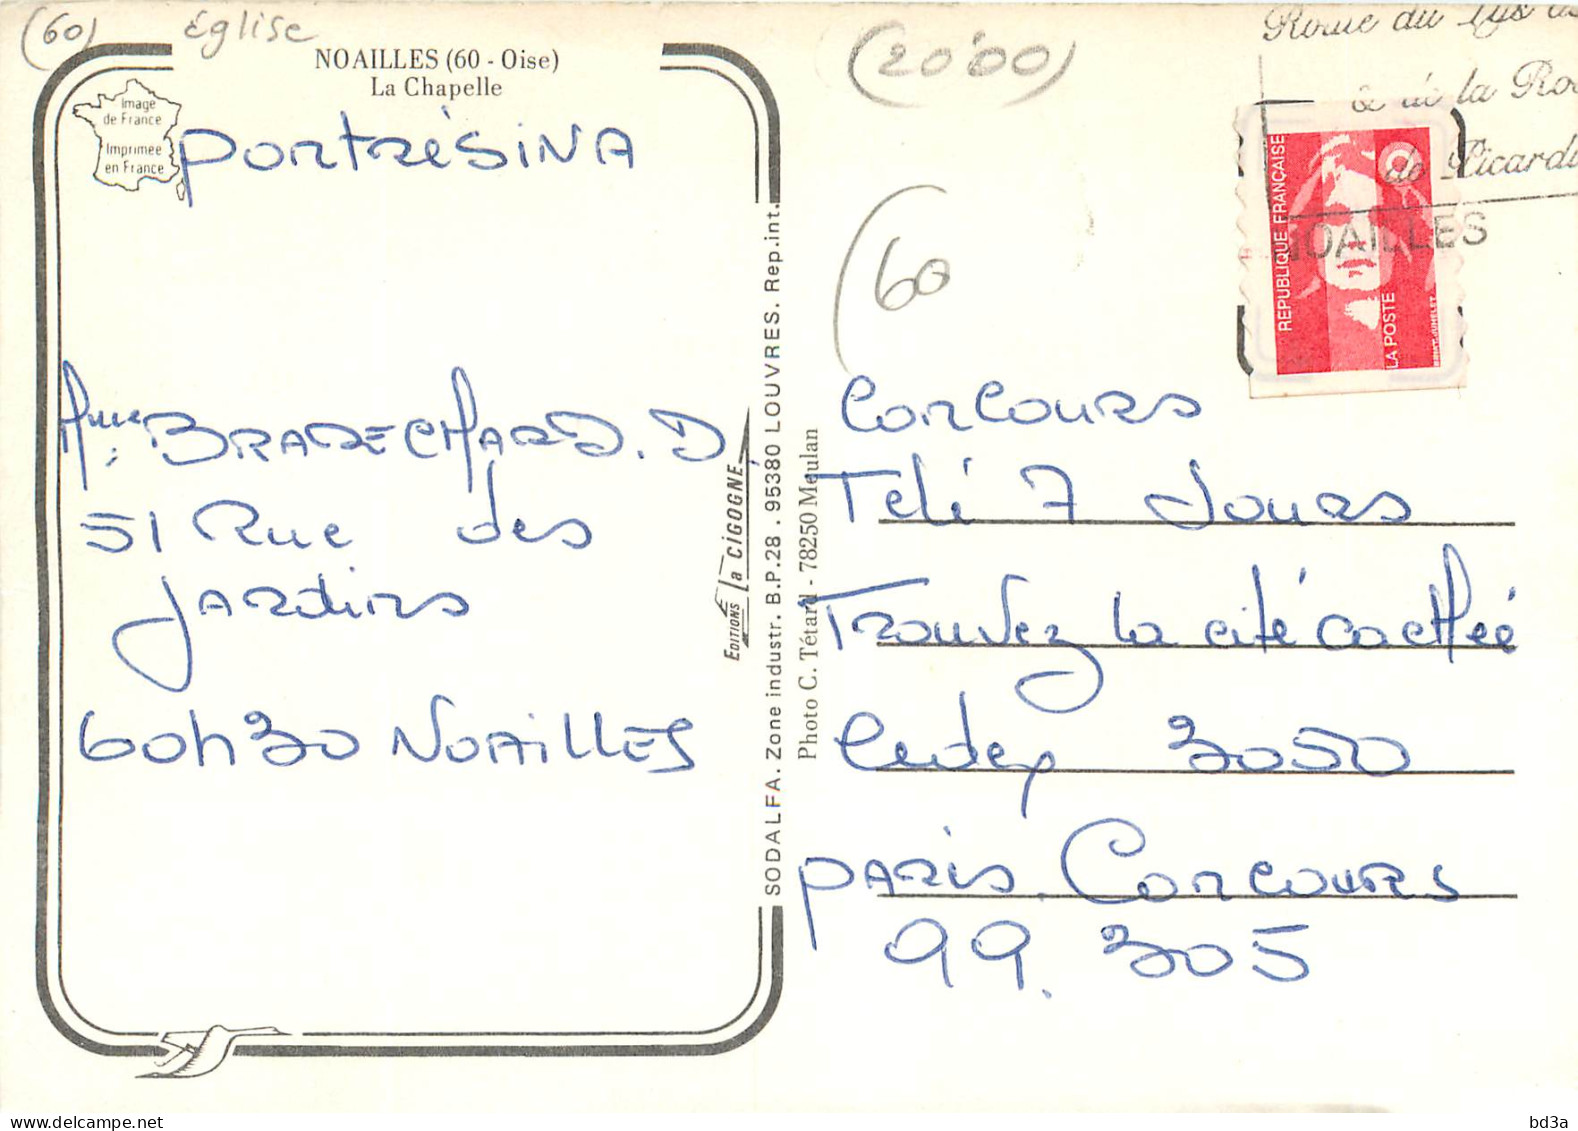 (60)
église
NOAILLES (60 - Oise)
La Chapelle
Image
de France
Imprimée
en France
PONTRÉSINA
Mme BRARECHARD. D,
51 Rue des
Jardins
60430 NOAILLES
EDITIONS La CIGOGNE
SODALFA. Zone industr. B.P.28 . 95380 LOUVRES. Rep.int.
Photo C. Tétard - 78250 Meulan
(20'00)
(60
Route du Lys
& de la Ro
de Picardi
NOAILLES
REPUBLIQUE FRANÇAISE
LA POSTE
Concours
Télé 7 Jours
Trouvez la cité cachée
Cedex 3050
PARIS. Concours
99. 305
bd3a